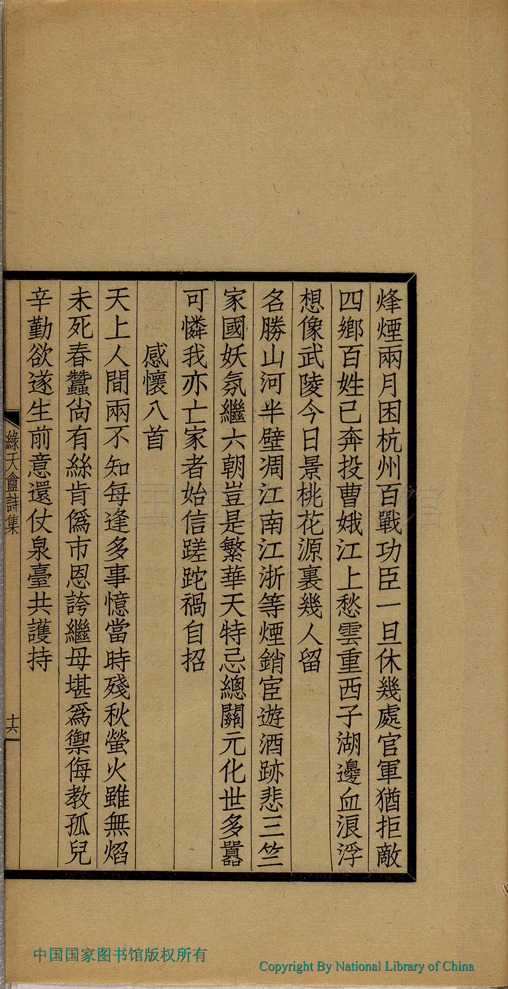 烽煙兩月困杭州百戰功臣一旦休幾處官軍猶拒敵
四鄉百姓已奔投曹娥江上愁雲重西子湖邊血浪浮
想像武陵今日景桃花源裏幾人留
名勝山河半壁凋江南江浙等煙銷宦遊酒跡悲三竺
家國妖氛繼六朝豈是繁華天特忌總關元化世多囂
可憐我亦亡家者始信蹉跎禍自招
感懷八首
天上人間兩不知每逢多事憶當時殘秋螢火雖無熖
未死春蠶尙有絲肯爲市恩誇繼母堪爲禦侮教孤兒
辛勤欲遂生前意還仗泉臺共護持
綠天盦詩集
十六
中国国家图书馆版权所有
Copyright By National Library of China